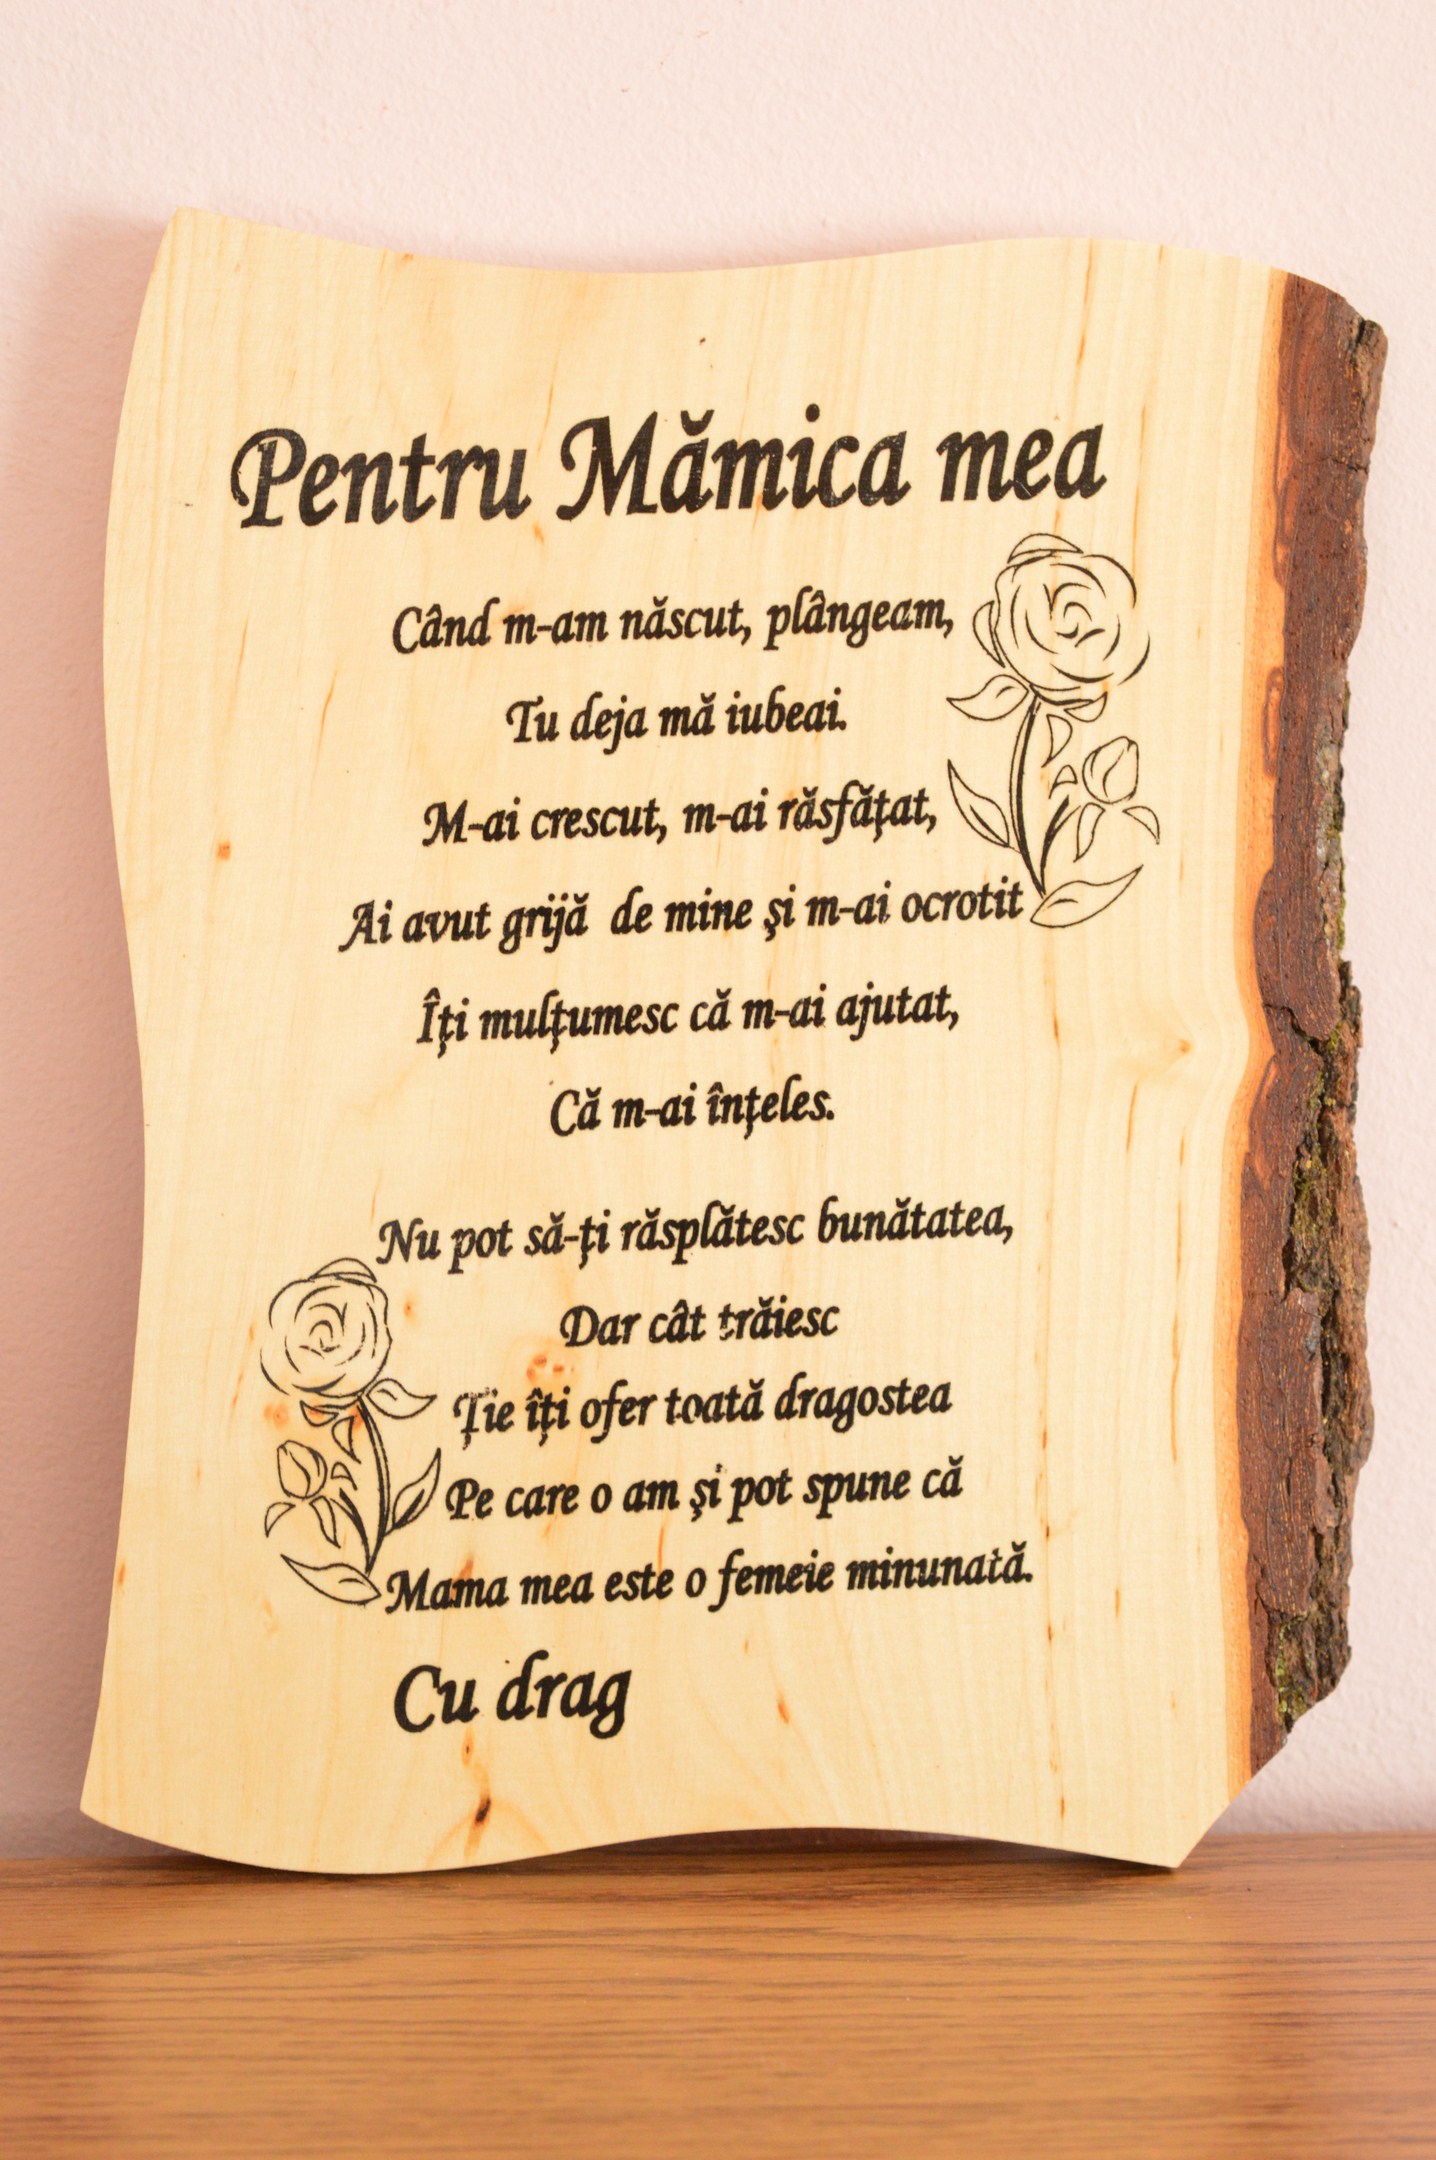 Pentru Mămica mea
Când m-am născut, plângeam,
Tu deja mă iubeai.
M-ai crescut, m-ai răsfăţat,
Ai avut grijă de mine şi m-ai ocrotit
Îţi mulţumesc că m-ai ajutat,
Că m-ai înţeles.
Nu pot să-ţi răsplătesc bunătatea,
Dar cât trăiesc
Ţie îţi ofer toată dragostea
Pe care o am şi pot spune că
Mama mea este o femeie minunată.
Cu drag